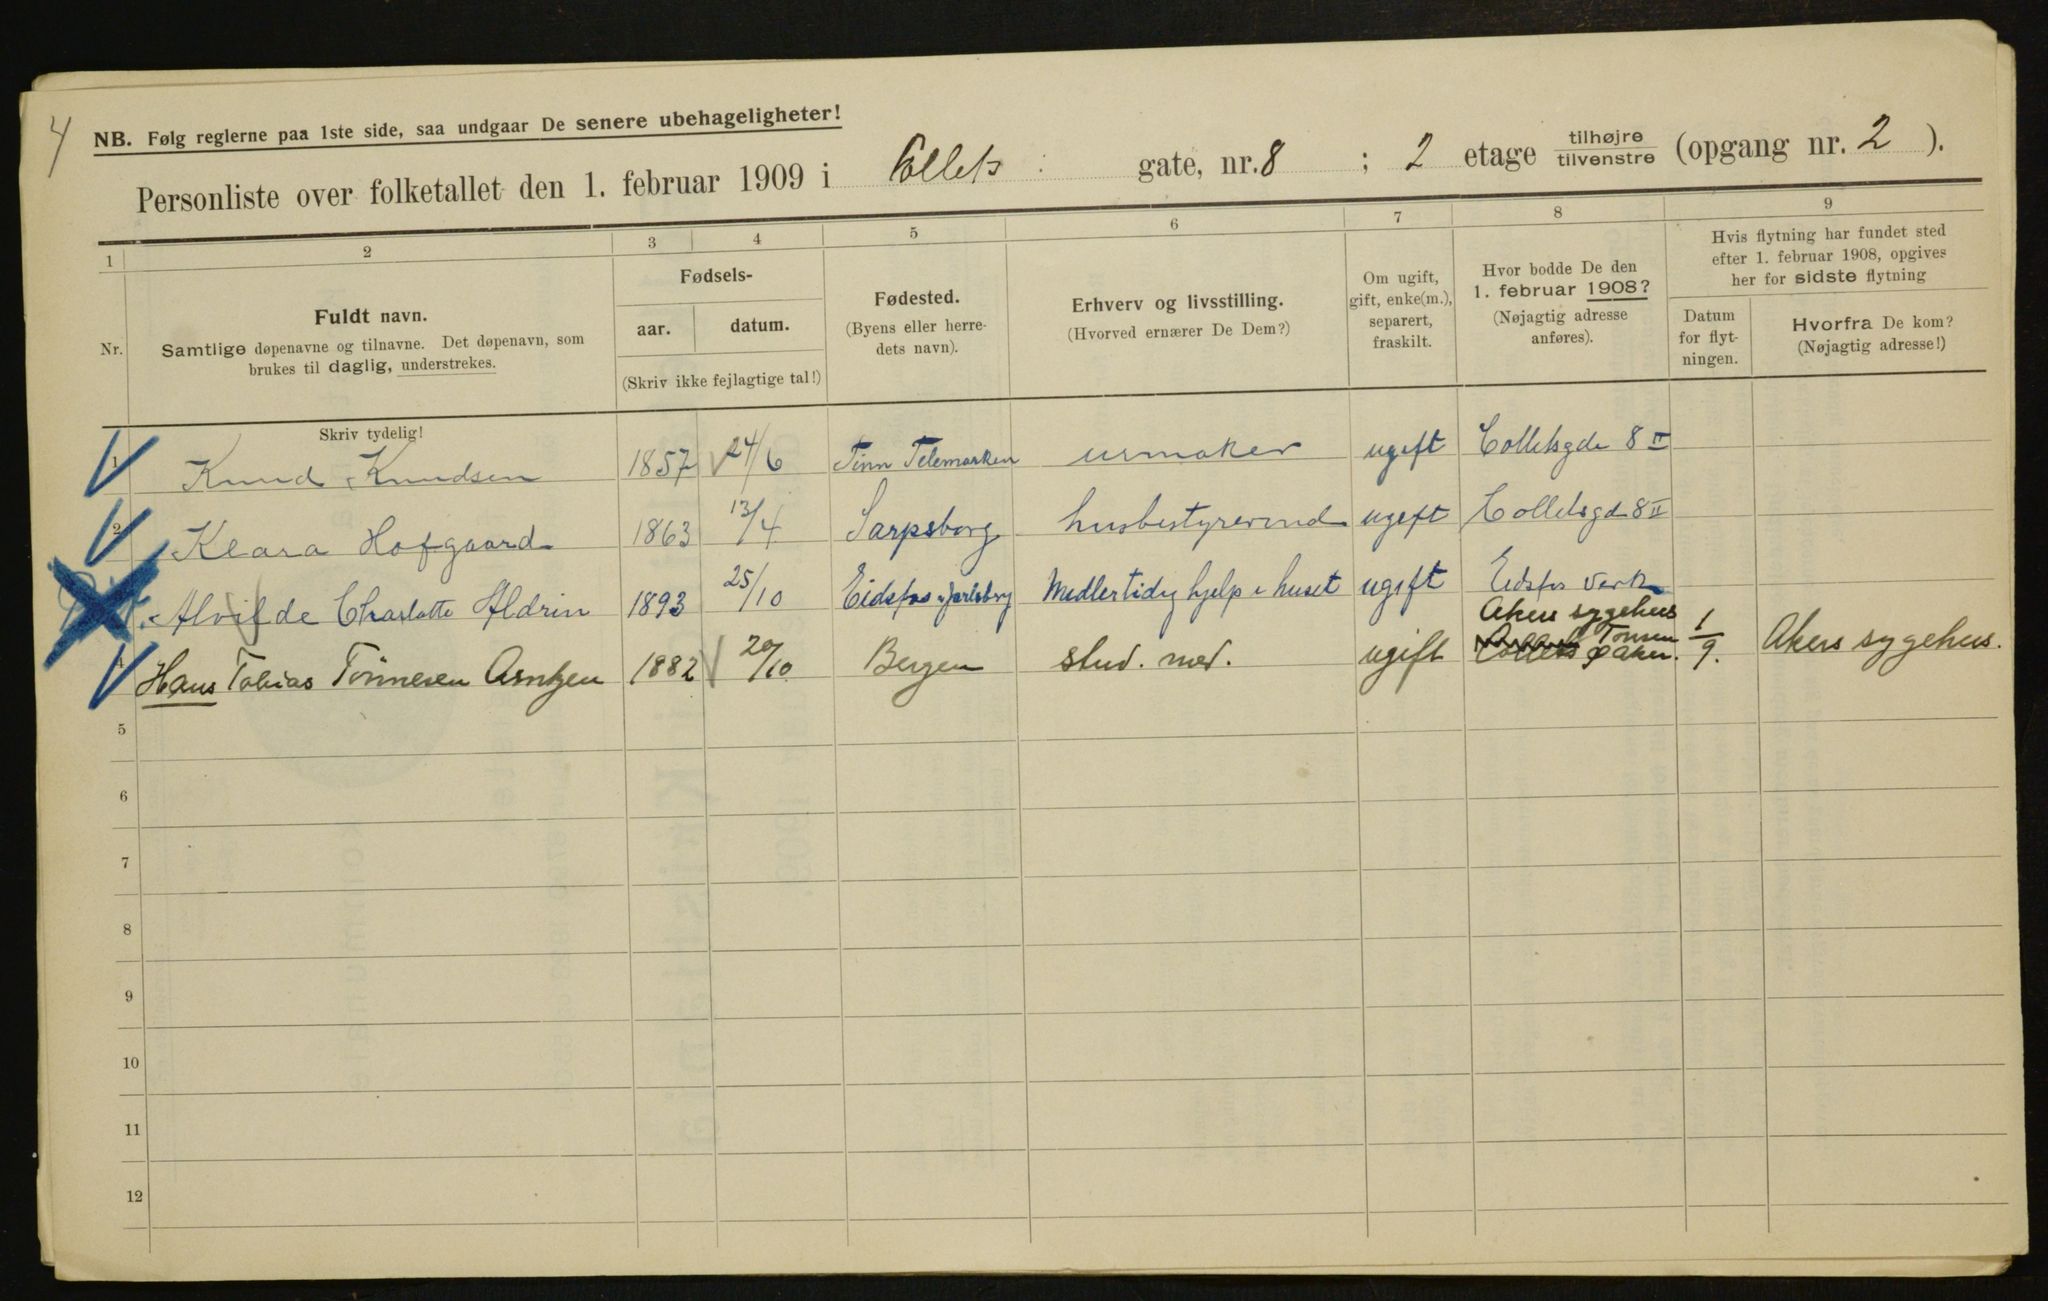 4
NB. Følg reglerne paa 1ste side, saa undgaar De senere ubehageligheter!
Personliste over folketallet den 1. februar 1909 i Collets gate, nr. 8 ; 2 etage tilhøjre tilvenstre (opgang nr. 2 ).
1 2 3 4 5 6 7 8 9
Nr.
Fuldt navn.
Samtlige døpenavne og tilnavne. Det døpenavn, som
brukes til daglig, understrekes.
Skriv tydelig!
Fødsels-
aar. datum.
(Skriv ikke fejlagtige tal!)
Fødested.
(Byens eller herre-
dets navn).
Erhverv og livsstilling.
(Hvorved ernærer De Dem?)
Om ugift,
gift, enke(m.),
separert,
fraskilt.
Hvor bodde De den
1. februar 1908?
(Nøjagtig adresse
anføres).
Hvis flytning har fundet sted
efter 1. februar 1908, opgives
her for sidste flytning
Datum
for flyt-
ningen.
Hvorfra De kom?
(Nøjagtig adresse!)
1 Knud Knudsen 1857 24/6 Tinn Telemarken urmaker ugift Colletsgde 8 II
2 Klara Hofgaard 1863 13/4 Sarpsborg husbestyrerind ugift Colletsgd 8 II
Alvilde Charlotte Aldrin 1893 25/10 Eidsfos Jarlsberg Medlertidig hjelp i huset ugift Eidsfos Verk
4 Hans Tobias Tönnesen Arntzen 1882 20/10 Bergen stud. med. ugift Akers sygehus Tonsen Aker. 1/9. Akers sygehus.
5
6
7
8
9
10
11
12